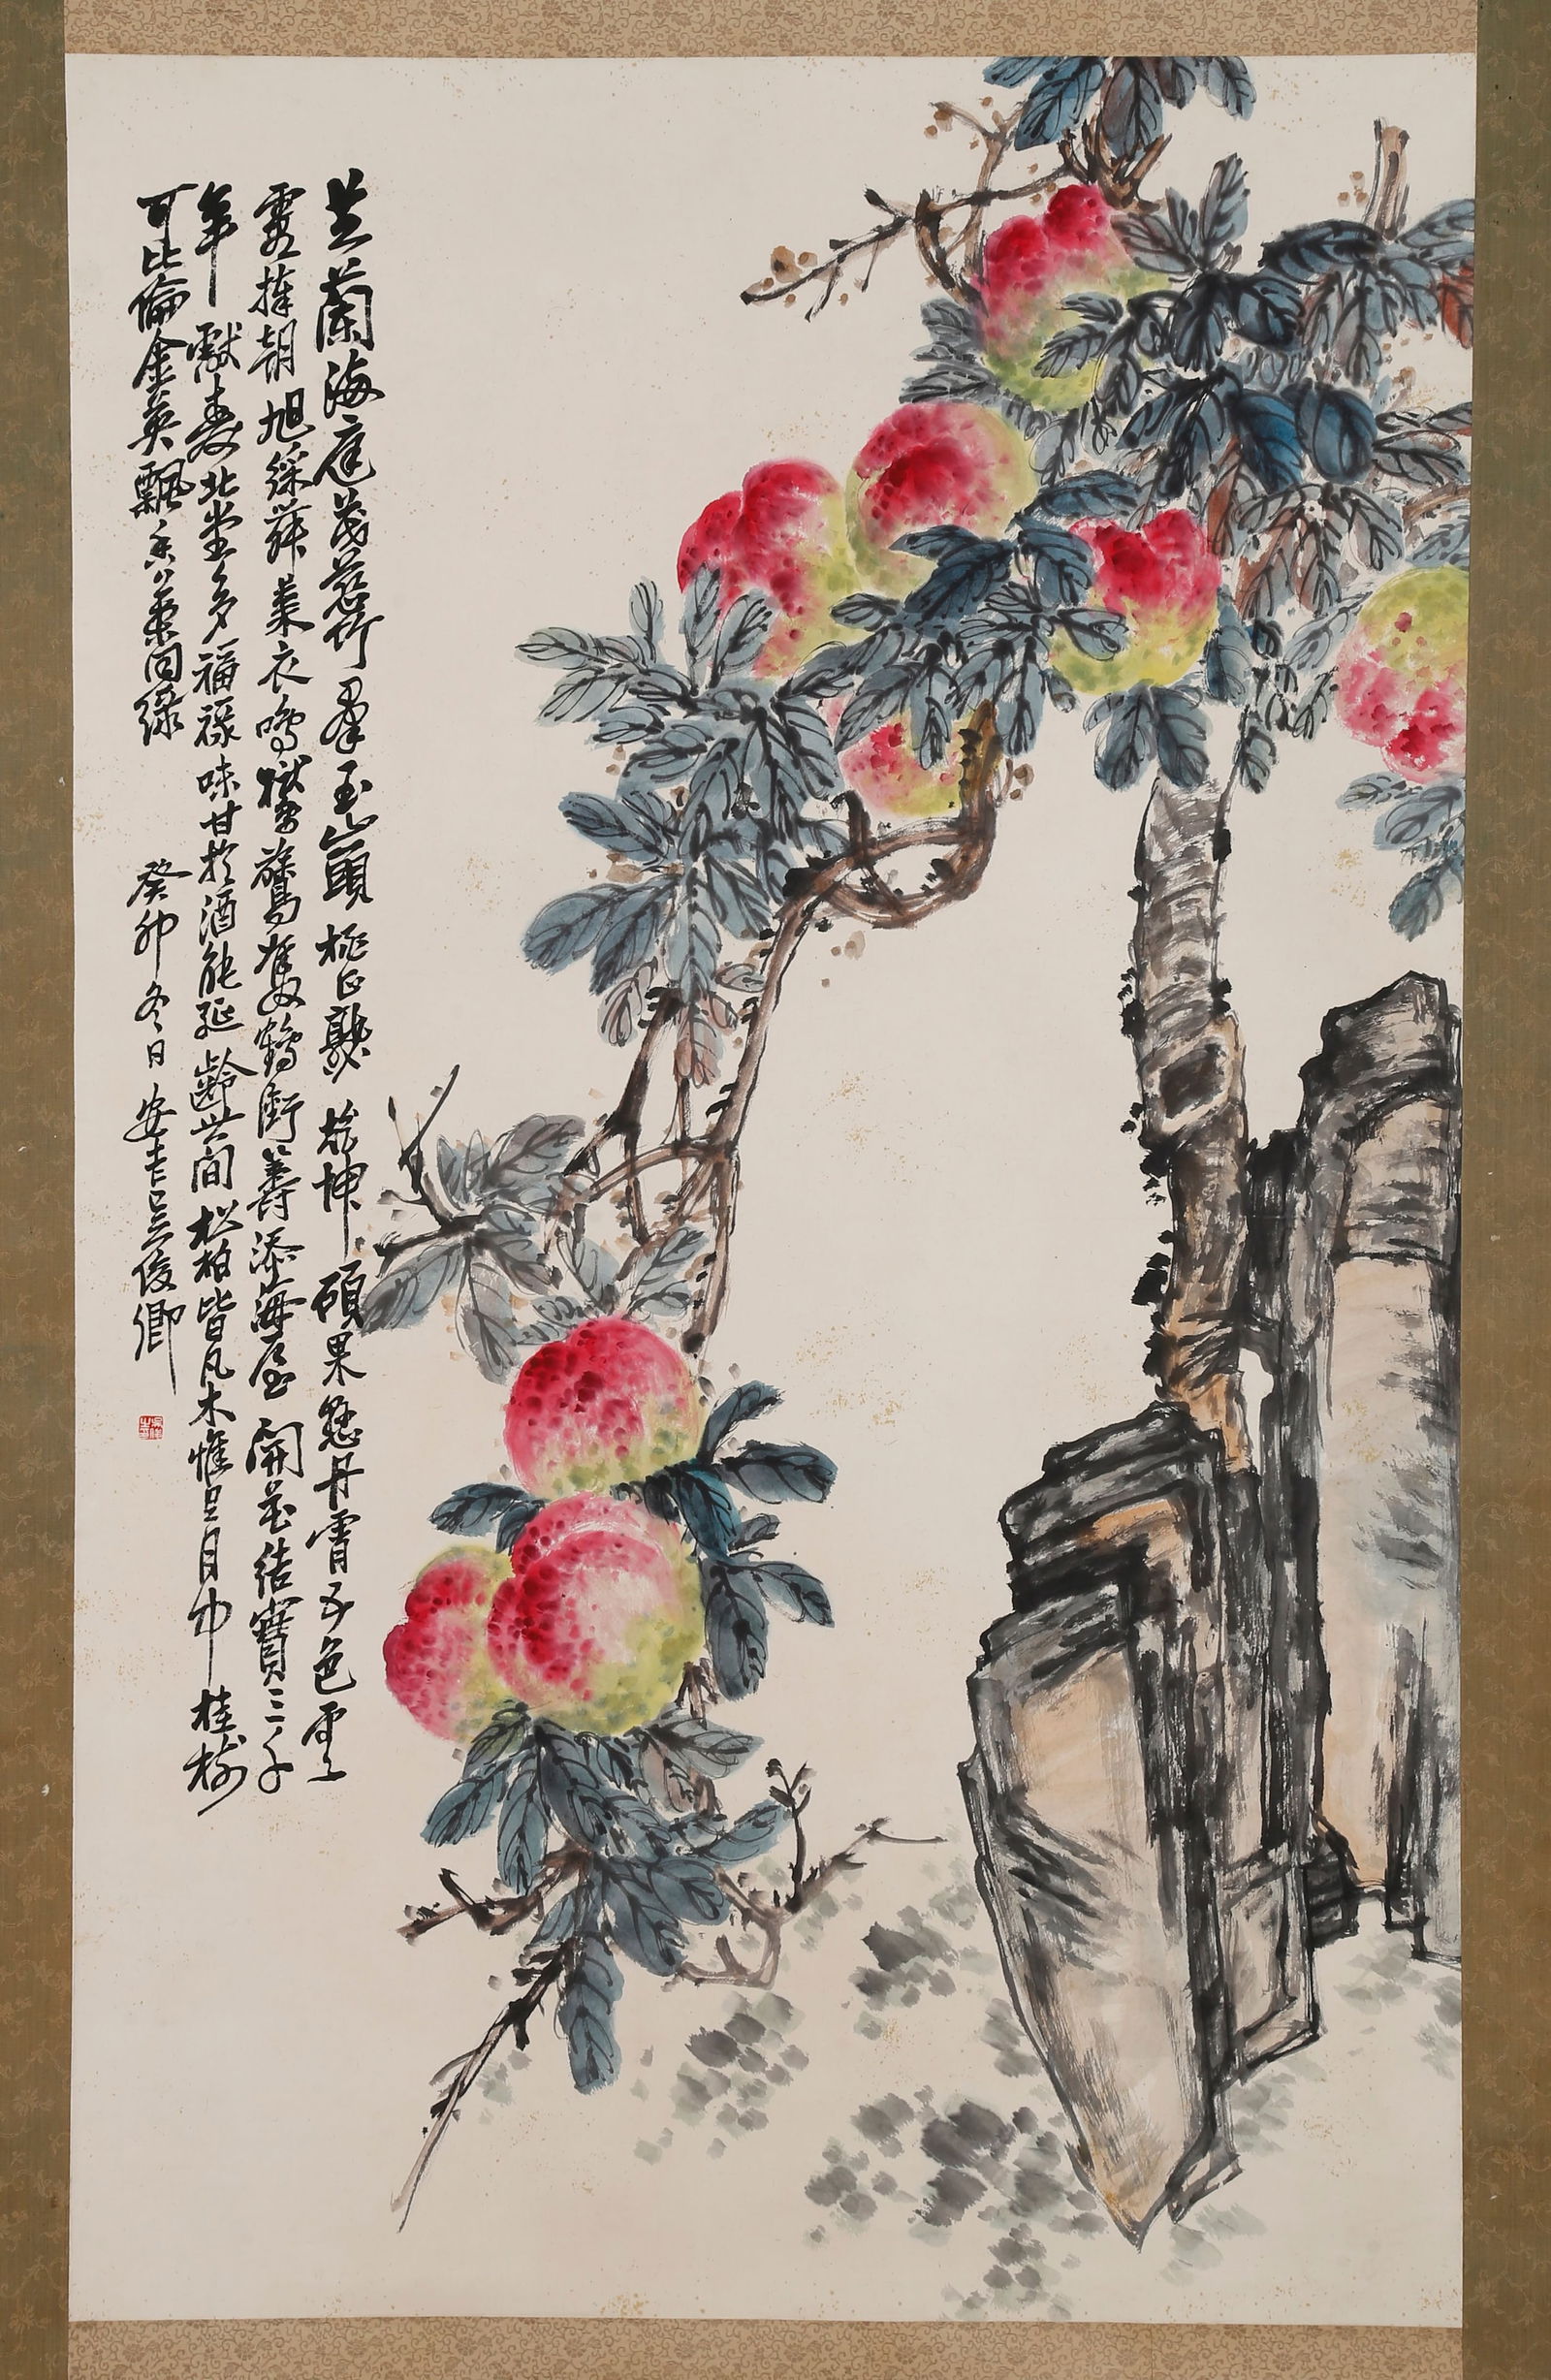 芝蘭海庭茂慈竹羣玉山頭桃正熟乾坤碩果懸丹霄五色雲
霞捧朝旭綵舞萊衣鳴鸑鷟奮雙鶴銜籌添海屋開花結實三千
年獻壽北堂多福祿味甘於酒能延齡世間松柏皆凡木惟是月中桂樹
可比倫金英飄香葉同綠
癸卯冬日安吉吳俊卿